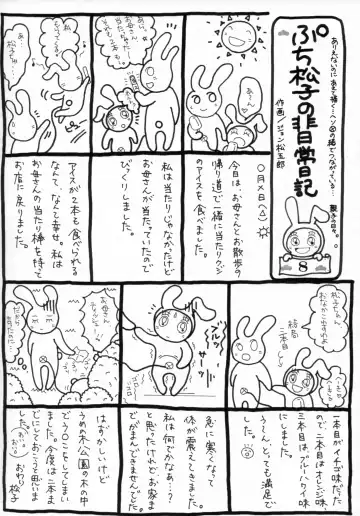 ありえないのにあえて描く…ヘソの緒でつながっている…
ぷち松子の非常日記
作画…ジョン松五郎
8
〇月×日(△)☼
今日は、お母さんとお散歩の
帰り道で一緒に当たりクジ
のアイスを食べました。
私は当たりじゃなかったけど
お母さんが当たっていたので
びっくりしました。
アイスが2本も食べられる
なんて、なんて幸せ。私は
お母さんの当たり棒を持って
お店に戻りました。
松子ちゃん
おなかこわすわよ
結局
二本目
一本目がイチゴ味だった
ので、二本目はオレンジ味
三本目はブルーハワイ味
にしました。
う〜ん、とっても満足で
した。
ブルッ
サーッ
急に寒くなって
体が震えてきました。
私は何でかなあ…?
と思ってたけれど、お家ま
でがまんできませんでした。
お母さん
はずかしいけど
うめの木公園の木の中
で、う〇こをしてしまい
ました。今度は二本ま
でにしておこうと思いま
す。
おわり
松子